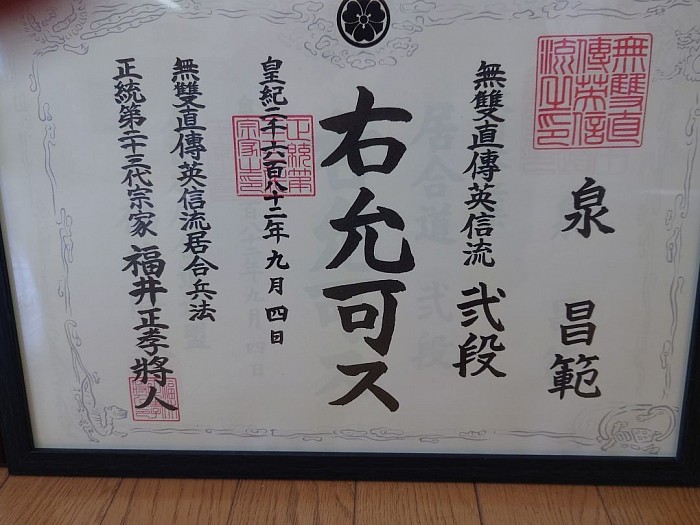 無雙直
傳英信
流之印
泉 昌範
無雙直傳英信流 弐段
右允可ス
皇紀二千六百八十二年九月四日
無雙直傳英信流居合兵法
正統第二十三代宗家 福井正孝將人